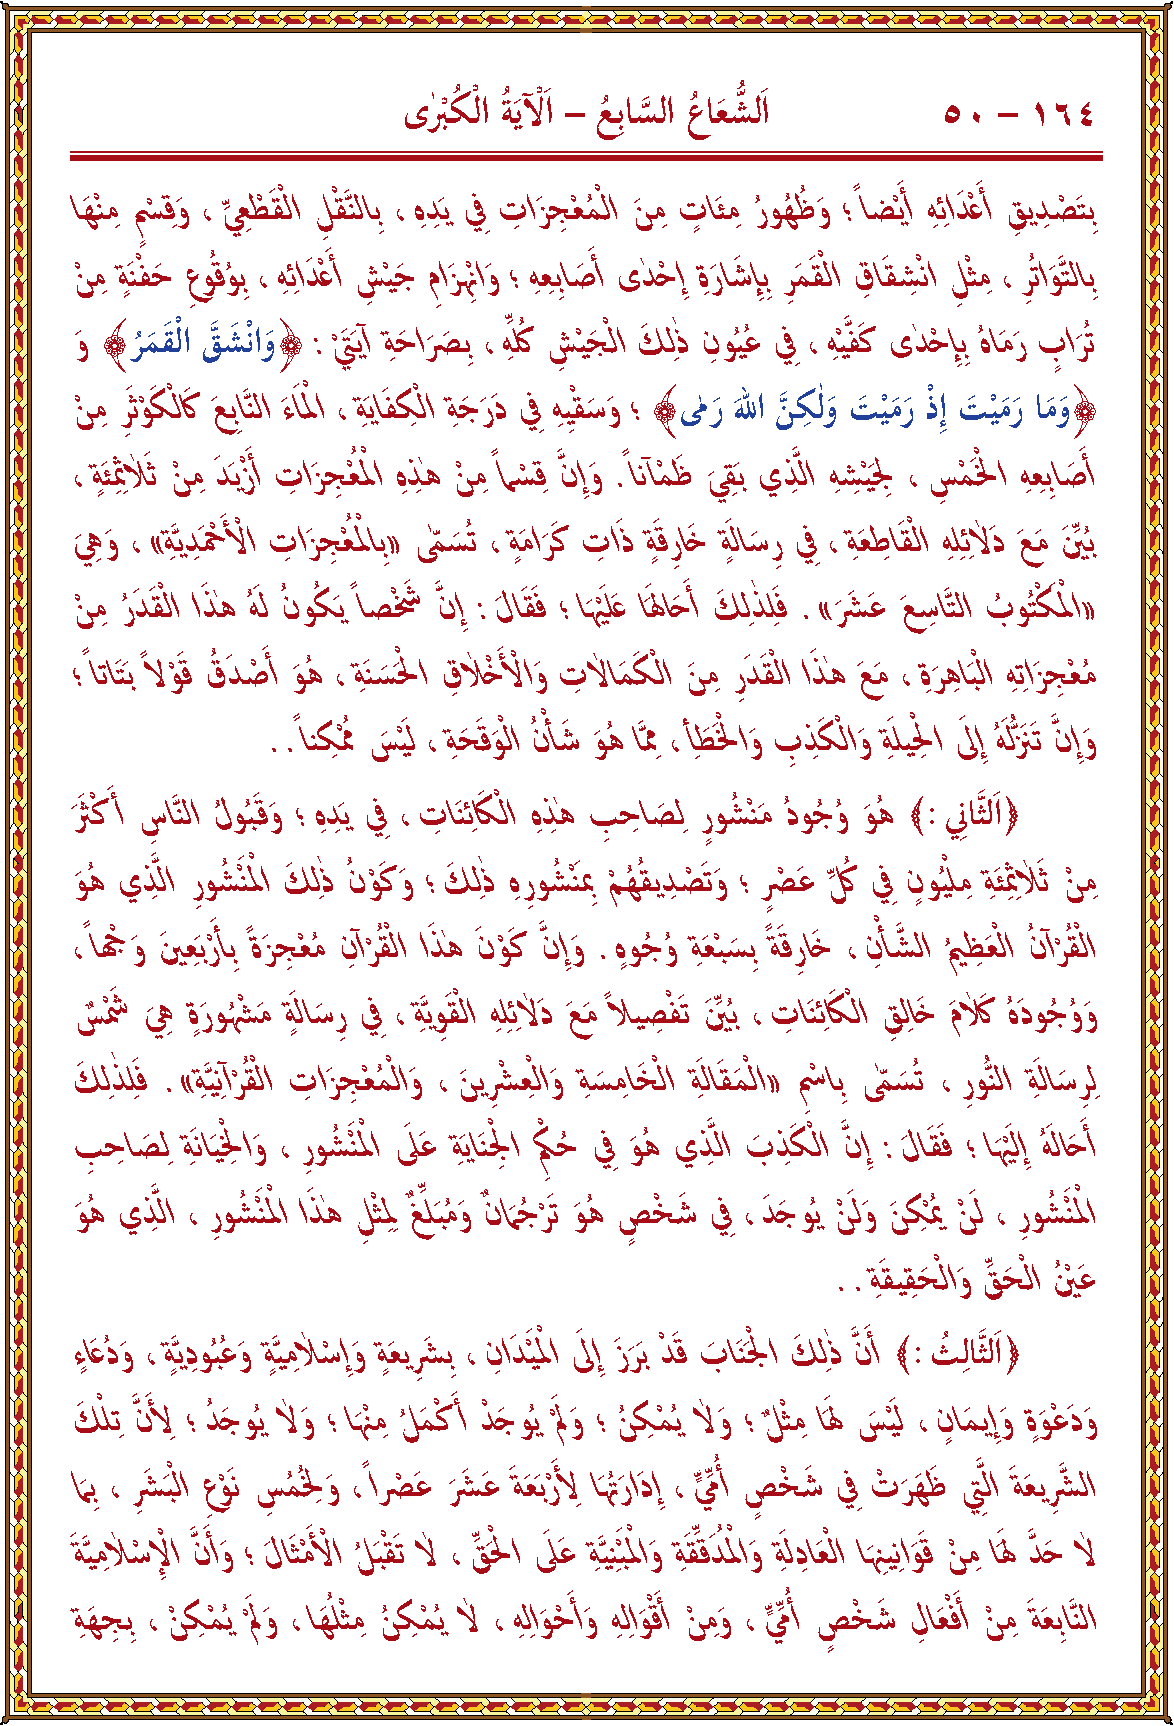 ١٦٤ – ٥٠ اَلشُّعَاعُ السَّابِعُ – اَلْآيَةُ الْكُبْرٰى
بِتَصْدِيقِ أَعْدَائِهِ أَيْضاً ؛ وَظُهُورُ مِئَاتٍ مِنَ الْمُعْجِزَاتِ فِي يَدِهِ ، بِالنَّقْلِ الْقَطْعِيِّ ، وَقِسْمٍ مِنْهَا
بِالتَّوَاتُرِ ، مِثْلِ انْشِقَاقِ الْقَمَرِ بِإِشَارَةِ إِحْدٰى أَصَابِعِهِ ؛ وَانْهِزَامِ جَيْشِ أَعْدَائِهِ ، بِوُقُوعِ حَفْنَةٍ مِنْ
تُرَابٍ رَمَاهُ بِإِحْدٰى كَفَّيْهِ ، فِي عُيُونِ ذٰلِكَ الْجَيْشِ كُلِّهِ ، بِصَرَاحَةِ آيَتَيْ : ﴿وَانْشَقَّ الْقَمَرُ﴾ وَ
﴿وَمَا رَمَيْتَ إِذْ رَمَيْتَ وَلٰكِنَّ اللّٰهَ رَمٰى﴾ ؛ وَسَقْيِهِ فِي دَرَجَةِ الْكِفَايَةِ ، الْمَاءَ النَّابِعَ كَالْكَوْثَرِ مِنْ
أَصَابِعِهِ الْخَمْسِ ، لِجَيْشِهِ الَّذِي بَقِيَ ظَمْآناً . وَإِنَّ قِسْماً مِنْ هٰذِهِ الْمُعْجِزَاتِ أَزْيَدَ مِنْ ثَلَاثِمِئَةٍ ،
بُيِّنَ مَعَ دَلَائِلِهِ الْقَاطِعَةِ ، فِي رِسَالَةٍ خَارِقَةٍ ذَاتِ كَرَامَةٍ ، تُسَمّٰى «بِالْمُعْجِزَاتِ الْأَحْمَدِيَّةِ» ، وَهِيَ
«الْمَكْتُوبُ التَّاسِعَ عَشَرَ» . فَلِذٰلِكَ أَحَالَهَا عَلَيْهَا ؛ فَقَالَ : إِنَّ شَخْصاً يَكُونُ لَهُ هٰذَا الْقَدَرُ مِنْ
مُعْجِزَاتِهِ الْبَاهِرَةِ ، مَعَ هٰذَا الْقَدَرِ مِنَ الْكَمَالَاتِ وَالْأَخْلَاقِ الْحَسَنَةِ ، هُوَ أَصْدَقُ قَوْلاً بَتَاتاً ؛
وَإِنَّ تَنَزُّلَهُ إِلَى الْحِيلَةِ وَالْكَذِبِ وَالْخَطَأِ ، مِمَّا هُوَ شَأْنُ الْوَقَحَةِ ، لَيْسَ مُمْكِناً . .
﴿اَلثَّانِي :﴾ هُوَ وُجُودُ مَنْشُورٍ لِصَاحِبِ هٰذِهِ الْكَائِنَاتِ ، فِي يَدِهِ ؛ وَقَبُولُ النَّاسِ أَكْثَرَ
مِنْ ثَلَاثِمِئَةِ مِلْيُونٍ فِي كُلِّ عَصْرٍ ؛ وَتَصْدِيقُهُمْ بِمَنْشُورِهِ ذٰلِكَ ؛ وَكَوْنُ ذٰلِكَ الْمَنْشُورِ الَّذِي هُوَ
الْقُرْآنُ الْعَظِيمُ الشَّأْنِ ، خَارِقَةً بِسَبْعَةِ وُجُوهٍ . وَإِنَّ كَوْنَ هٰذَا الْقُرْآنِ مُعْجِزَةً بِأَرْبَعِينَ وَجْهاً ،
وَوُجُودَهُ كَلَامَ خَالِقِ الْكَائِنَاتِ ، بُيِّنَ تَفْصِيلاً مَعَ دَلَائِلِهِ الْقَوِيَّةِ ، فِي رِسَالَةٍ مَشْهُورَةٍ هِيَ شَمْسٌ
لِرِسَالَةِ النُّورِ ، تُسَمّٰى بِاسْمِ «الْمَقَالَةِ الْخَامِسَةِ وَالْعِشْرِينَ ، وَالْمُعْجِزَاتِ الْقُرْآنِيَّةِ» . فَلِذٰلِكَ
أَحَالَهُ إِلَيْهَا ؛ فَقَالَ : إِنَّ الْكَذِبَ الَّذِي هُوَ فِي حُكْمِ الْجِنَايَةِ عَلَى الْمَنْشُورِ ، وَالْخِيَانَةِ لِصَاحِبِ
الْمَنْشُورِ ، لَنْ يُمْكِنَ وَلَنْ يُوجَدَ ، فِي شَخْصٍ هُوَ تَرْجُمَانٌ وَمُبَلِّغٌ لِمِثْلِ هٰذَا الْمَنْشُورِ ، الَّذِي هُوَ
عَيْنُ الْحَقِّ وَالْحَقِيقَةِ . .
﴿اَلثَّالِثُ :﴾ أَنَّ ذٰلِكَ الْجَنَابَ قَدْ بَرَزَ إِلَى الْمَيْدَانِ ، بِشَرِيعَةٍ وَإِسْلَامِيَّةٍ وَعُبُودِيَّةٍ ، وَدُعَاءٍ
وَدَعْوَةٍ وَإِيمَانٍ ، لَيْسَ لَهَا مِثْلٌ ؛ وَلَا يُمْكِنُ ؛ وَلَمْ يُوجَدْ أَكْمَلُ مِنْهَا ؛ وَلَا يُوجَدُ ؛ لِأَنَّ تِلْكَ
الشَّرِيعَةَ الَّتِي ظَهَرَتْ فِي شَخْصٍ أُمِّيٍّ ، إِدَارَتُهَا لِأَرْبَعَةَ عَشَرَ عَصْراً ، وَلِخُمُسِ نَوْعِ الْبَشَرِ ، بِمَا
لَا حَدَّ لَهَا مِنْ قَوَانِينِهَا الْعَادِلَةِ وَالْمُدَقِّقَةِ وَالْمَبْنِيَّةِ عَلَى الْحَقِّ ، لَا تَقْبَلُ الْأَمْثَالَ ؛ وَأَنَّ الْإِسْلَامِيَّةَ
النَّابِعَةَ مِنْ أَفْعَالِ شَخْصٍ أُمِّيٍّ ، وَمِنْ أَقْوَالِهِ وَأَحْوَالِهِ ، لَا يُمْكِنُ مِثْلُهَا ، وَلَمْ يُمْكِنْ ، بِجِهَةِ